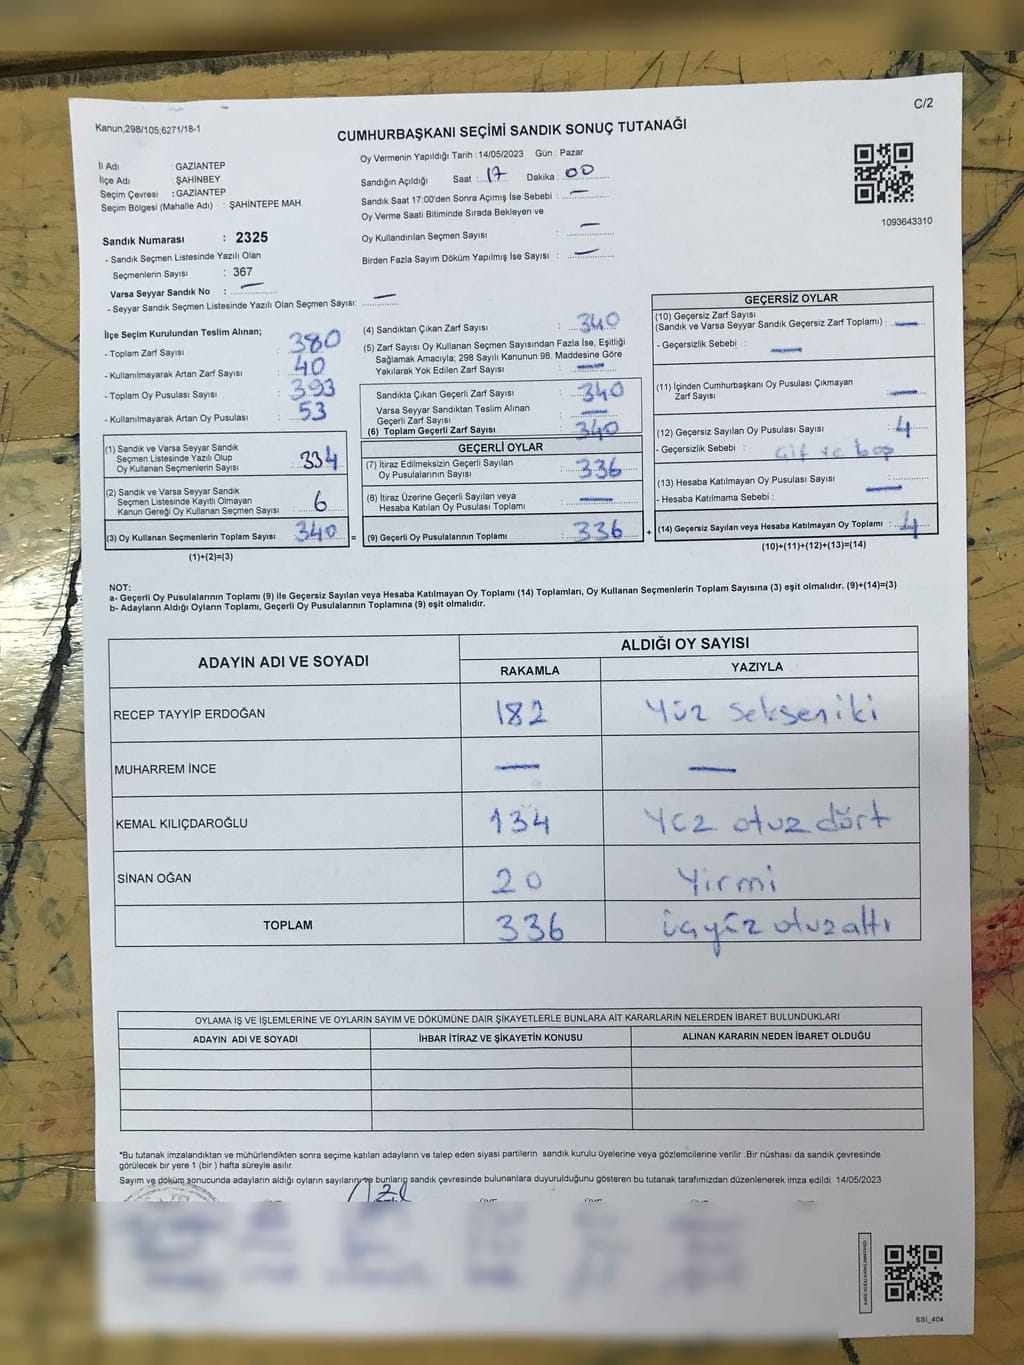 C/2
Kanun;298/105;6271/18-1
CUMHURBAŞKANI SEÇİMİ SANDIK SONUÇ TUTANAĞI
İl Adı : GAZİANTEP
İlçe Adı : ŞAHİNBEY
Seçim Çevresi : GAZİANTEP
Seçim Bölgesi (Mahalle Adı) : ŞAHİNTEPE MAH.
Oy Vermenin Yapıldığı Tarih : 14/05/2023 Gün : Pazar
Sandığın Açıldığı Saat : 17 Dakika : 00
Sandık Saat 17:00'den Sonra Açımış İse Sebebi : —
Oy Verme Saati Bitiminde Sırada Bekleyen ve
Oy Kullandırılan Seçmen Sayısı : —
Birden Fazla Sayım Döküm Yapılmış İse Sayısı : —
1093643310
Sandık Numarası : 2325
- Sandık Seçmen Listesinde Yazılı Olan
Seçmenlerin Sayısı : 367
Varsa Seyyar Sandık No : —
- Seyyar Sandık Seçmen Listesinde Yazılı Olan Seçmen Sayısı: —
İlçe Seçim Kurulundan Teslim Alınan;
- Toplam Zarf Sayısı : 380
- Kullanılmayarak Artan Zarf Sayısı : 40
- Toplam Oy Pusulası Sayısı : 393
- Kullanılmayarak Artan Oy Pusulası : 53
(1) Sandık ve Varsa Seyyar Sandık
Seçmen Listesinde Yazılı Olup
Oy Kullanan Seçmenlerin Sayısı : 334
(2) Sandık ve Varsa Seyyar Sandık
Seçmen Listesinde Kayıtlı Olmayan
Kanun Gereği Oy Kullanan Seçmen Sayısı : 6
(3) Oy Kullanan Seçmenlerin Toplam Sayısı : 340 =
(1)+(2)=(3)
(4) Sandıktan Çıkan Zarf Sayısı : 340
(5) Zarf Sayısı Oy Kullanan Seçmen Sayısından Fazla İse, Eşitliği
Sağlamak Amacıyla; 298 Sayılı Kanunun 98. Maddesine Göre
Yakılarak Yok Edilen Zarf Sayısı : —
Sandıkta Çıkan Geçerli Zarf Sayısı : 340
Varsa Seyyar Sandıktan Teslim Alınan
Geçerli Zarf Sayısı : —
(6) Toplam Geçerli Zarf Sayısı : 340
GEÇERLİ OYLAR
(7) İtiraz Edilmeksizin Geçerli Sayılan
Oy Pusulalarının Sayısı : 336
(8) İtiraz Üzerine Geçerli Sayılan veya
Hesaba Katılan Oy Pusulası Toplamı : —
(9) Geçerli Oy Pusulalarının Toplamı : 336 +
GEÇERSİZ OYLAR
(10) Geçersiz Zarf Sayısı
(Sandık ve Varsa Seyyar Sandık Geçersiz Zarf Toplamı) : —
- Geçersizlik Sebebi : —
(11) İçinden Cumhurbaşkanı Oy Pusulası Çıkmayan
Zarf Sayısı : —
(12) Geçersiz Sayılan Oy Pusulası Sayısı : 4
- Geçersizlik Sebebi : ve
(13) Hesaba Katılmayan Oy Pusulası Sayısı : —
- Hesaba Katılmama Sebebi :
(14) Geçersiz Sayılan veya Hesaba Katılmayan Oy Toplamı : 4
(10)+(11)+(12)+(13)=(14)
NOT:
a- Geçerli Oy Pusulalarının Toplamı (9) ile Geçersiz Sayılan veya Hesaba Katılmayan Oy Toplamı (14) Toplamları, Oy Kullanan Seçmenlerin Toplam Sayısına (3) eşit olmalıdır. (9)+(14)=(3)
b- Adayların Aldığı Oyların Toplamı, Geçerli Oy Pusulalarının Toplamına (9) eşit olmalıdır.
ADAYIN ADI VE SOYADI ALDIĞI OY SAYISI
RAKAMLA YAZIYLA
RECEP TAYYİP ERDOĞAN 182 Yüz seksen iki
MUHARREM İNCE — —
KEMAL KILIÇDAROĞLU 134 Yüz otuz dört
SİNAN OĞAN 20 Yirmi
TOPLAM 336 üçyüz otuz altı
OYLAMA İŞ VE İŞLEMLERİNE VE OYLARIN SAYIM VE DÖKÜMÜNE DAİR ŞİKAYETLERLE BUNLARA AİT KARARLARIN NELERDEN İBARET BULUNDUKLARI
ADAYIN ADI VE SOYADI İHBAR İTİRAZ VE ŞİKAYETİN KONUSU ALINAN KARARIN NEDEN İBARET OLDUĞU
*Bu tutanak imzalandıktan ve mühürlendikten sonra seçime katılan adayların ve talep eden siyasi partilerin sandık kurulu üyelerine veya gözlemcilerine verilir .Bir nüshası da sandık çevresinde
görülecek bir yere 1 (bir ) hafta süreyle asılır.
Sayım ve döküm sonucunda adayların aldığı oyların sayılarını ve bunların sandık çevresinde bulunanlara duyurulduğunu gösteren bu tutanak tarafımızdan düzenlenerek imza edildi. 14/05/2023
SSI_404